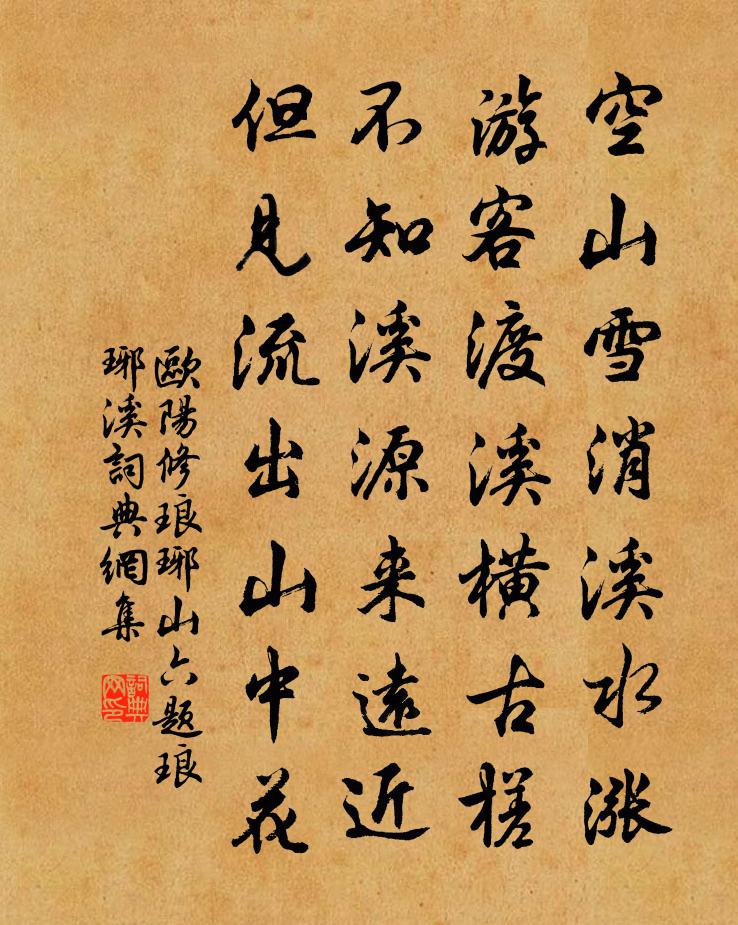 空山雪消溪水涨
游客渡溪横古槎
不知溪源来遠近
但見流出山中花
歐陽修琅琊山六题琅
琊溪詞典網集
詞典网印